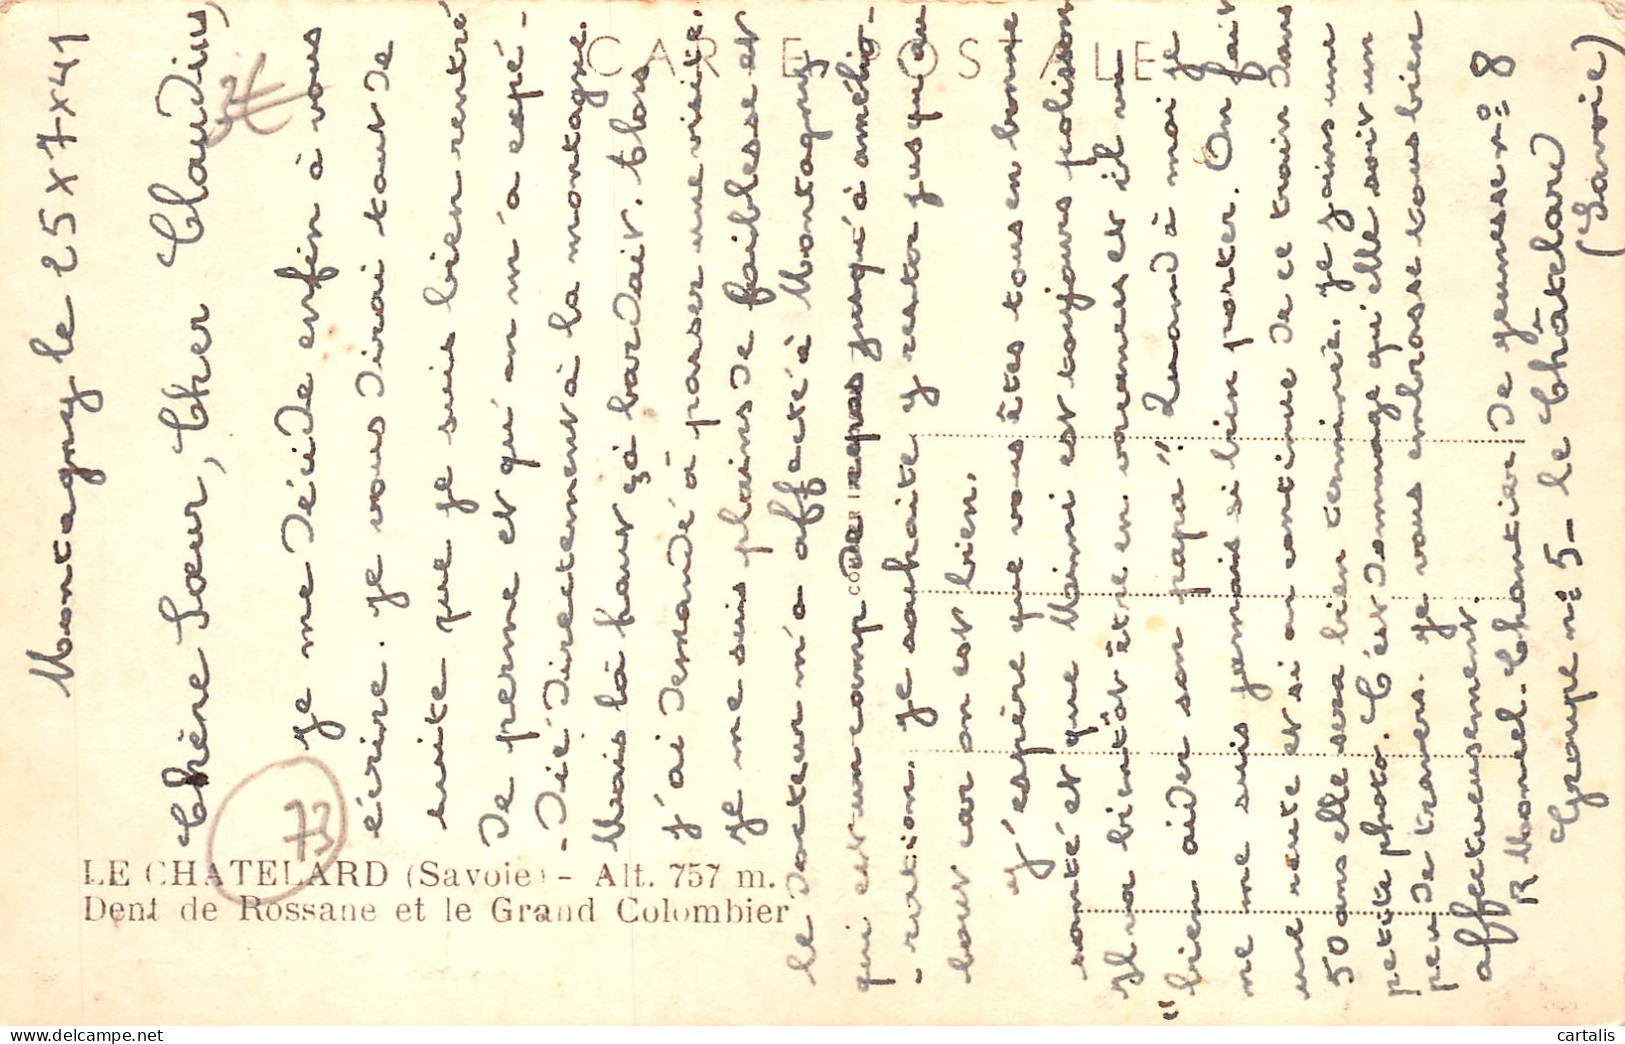 CARTE POSTALE
Montagny le 25 x 7 x 41
Chère Sœur, Cher Claudius,
Je me décide enfin à vous
écrire. Je vous dirai tout de
suite que je suis bien rentré
de perme et qu'on m'a expé-
-dié directement à la montagne.
Mais là haut çà bardait. Alors
j'ai demandé à passer une visite.
Je me suis plains de faiblesse et
le docteur m'a affecté à Montagny
qui est un camp de repos jusqu'à amélio-
-ration. Je souhaite y rester jusqu'au
bout car on est bien.
J'espère que vous êtes tous en bonne
santé et que Mimi est toujours polisson
Il va bientôt être en vacances et il va
"bien aider son papa". Quand à moi je
me me suis jamais si bien porter. On fait
une route et si on continue de ce train dans
50 ans elle sera bien terminée. Je joins une
petite photo. C'est dommage qu'elle soit un
peu de travers. Je vous embrasse tous bien
affectueusement.
R Monel. Chantier de jeunesse nº 8
Groupe nº 5 - le Châtelard
(Savoie)
73
LE CHATELARD (Savoie) - Alt. 757 m.
Dent de Rossane et le Grand Colombier
cartalis